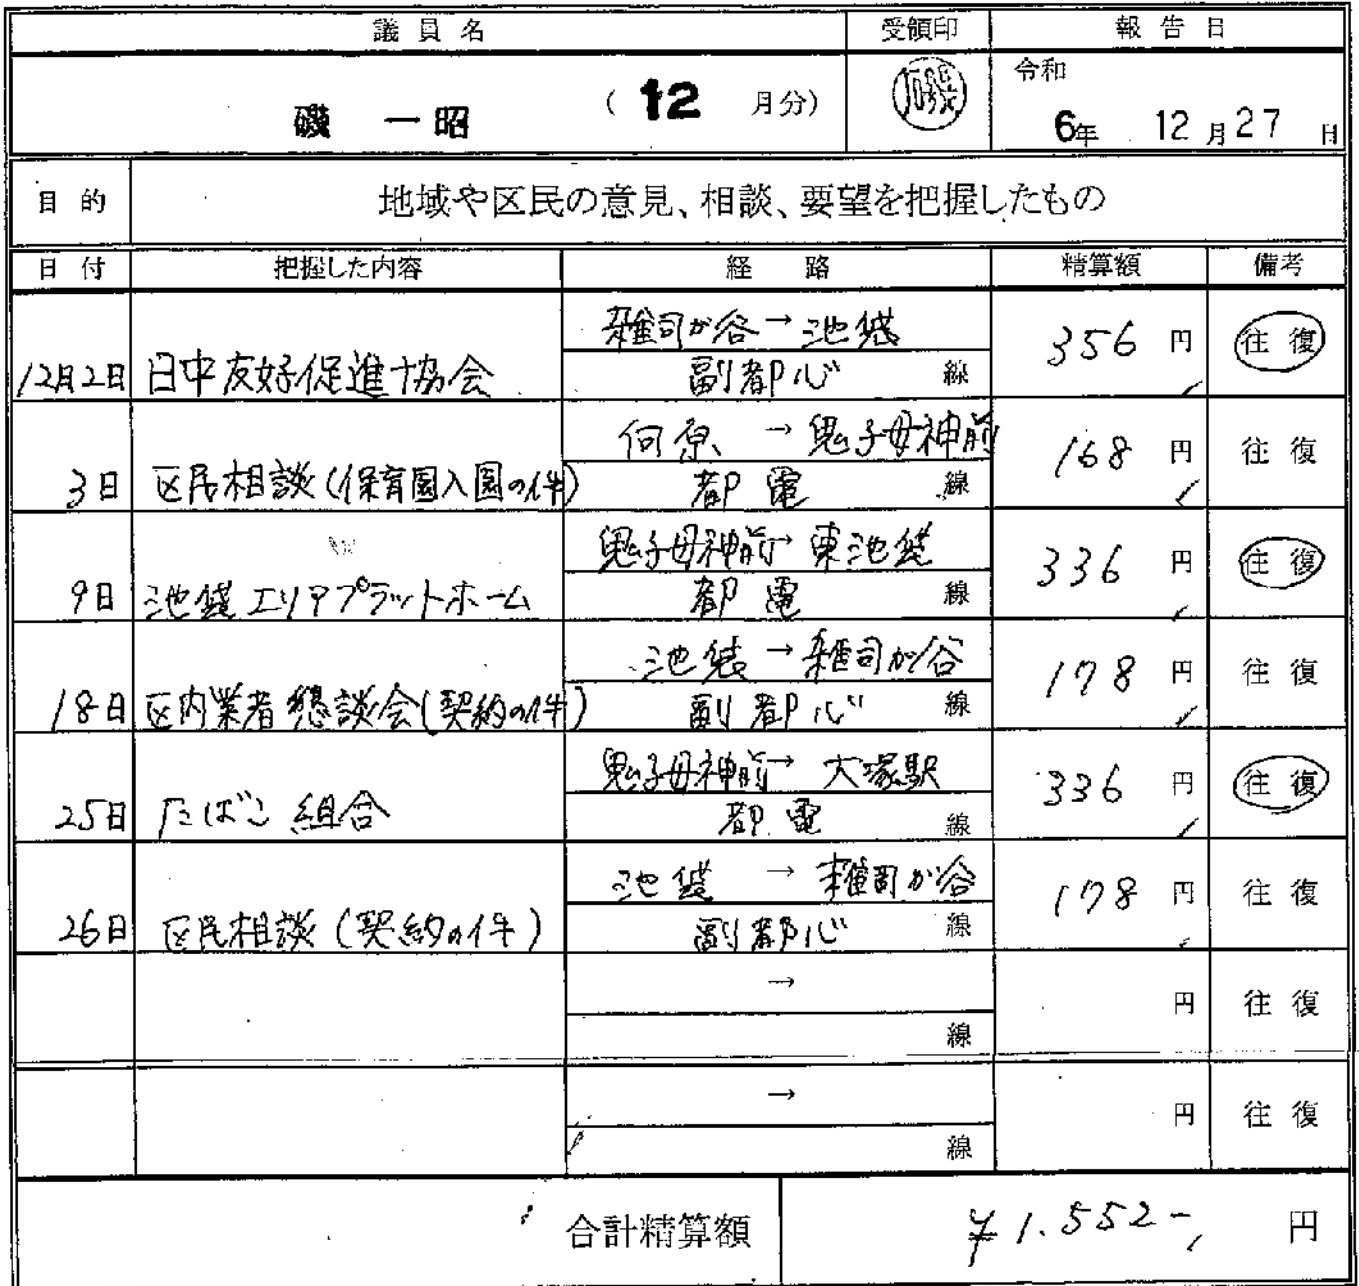 議員名 受領印 報告日
磯 一昭 (12 月分) 令和 6年 12月27日
目的 地域や区民の意見、相談、要望を把握したもの
日付 把握した内容 経路 精算額 備考
12月2日 日中友好促進協会 雑司が谷→池袋 副都心線 356円 往復
3日 区民相談(保育園入園の件) 向原→鬼子母神前 都電線 168円 往復
9日 池袋エリアプラットホーム 鬼子母神前→東池袋 都電線 336円 往復
18日 区内業者懇談会(契約の件) 池袋→雑司が谷 副都心線 178円 往復
25日 たばこ組合 鬼子母神前→大塚駅 都電線 336円 往復
26日 区民相談(契約の件) 池袋→雑司が谷 副都心線 178円 往復
→ 線 円 往復
→ 線 円 往復
合計精算額 ¥1.552- 円